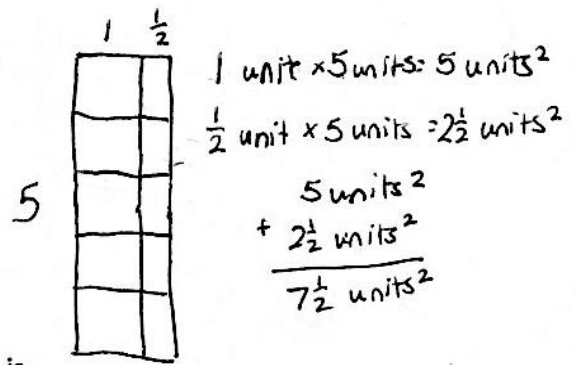 1 ½
1 unit × 5 units = 5 units²
½ unit × 5 units = 2½ units²
5
5 units²
+ 2½ units²
7½ units²